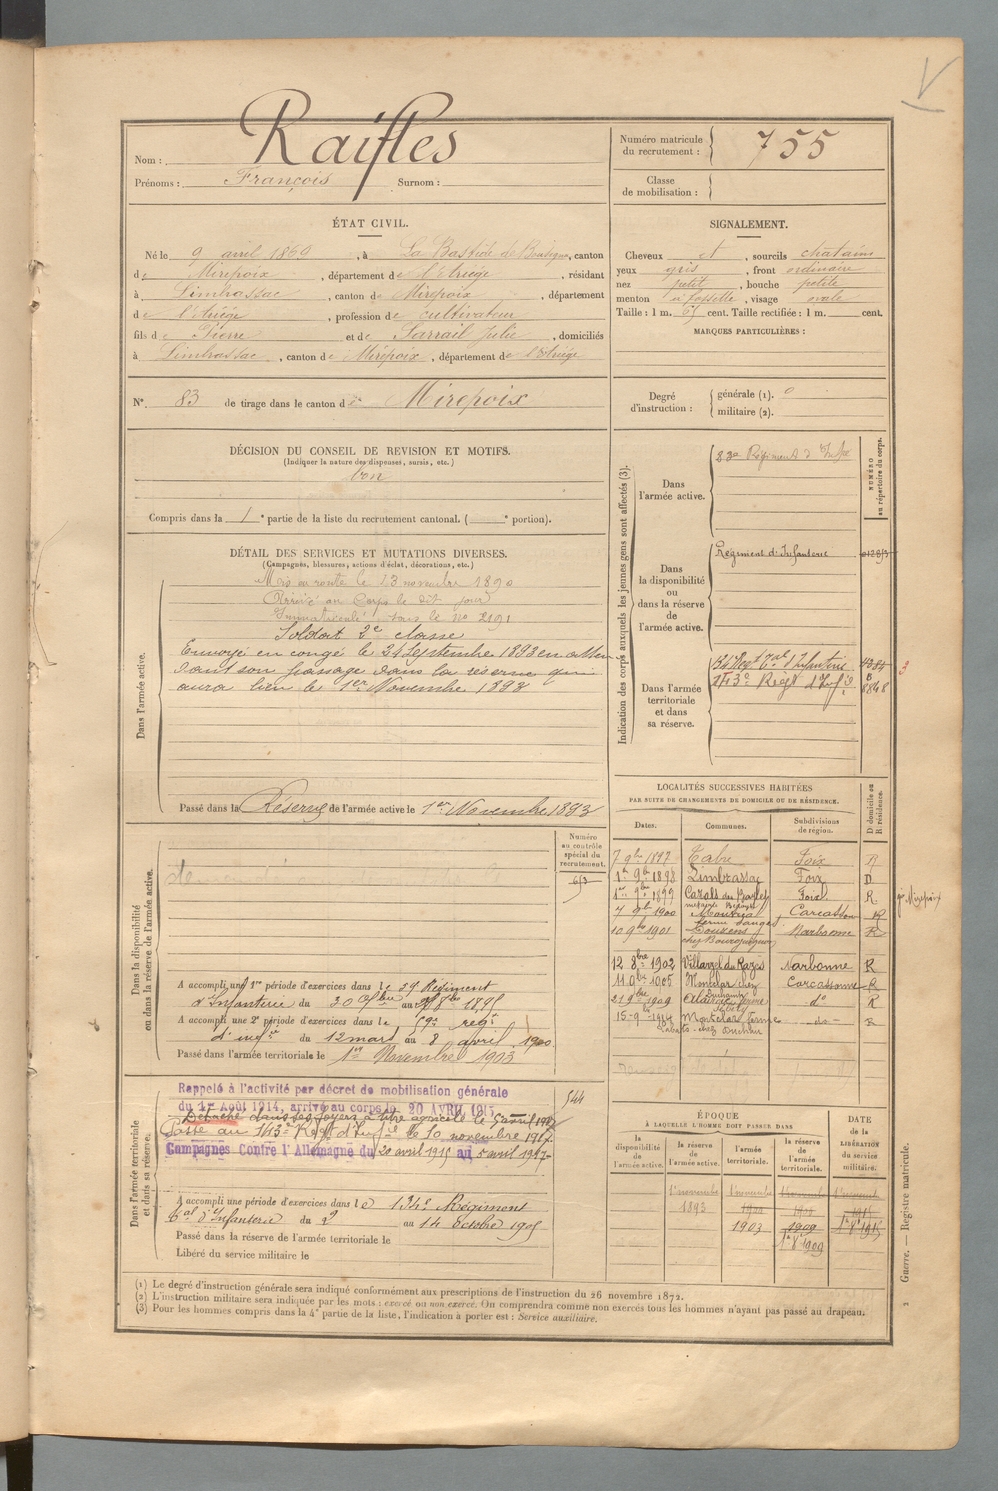 V
Nom : Raifles
Prénoms : François Surnom :
Numéro matricule du recrutement : 755
Classe de mobilisation :
ÉTAT CIVIL.
Né le 9 avril 1869, à La Bastide de Bousignac, canton
de Mirepoix, département de l'Ariège, résidant
à Limbrassac, canton de Mirepoix, département
de l'Ariège, profession de cultivateur
fils de Pierre et de Sarrail Julie, domiciliés
à Limbrassac, canton de Mirepoix, département de l'Ariège
N°. 83 de tirage dans le canton de Mirepoix
SIGNALEMENT.
Cheveux et, sourcils chatains
yeux gris, front ordinaire
nez petit, bouche petite
menton à fossette, visage ovale
Taille : 1 m. 65 cent. Taille rectifiée : 1 m. cent.
MARQUES PARTICULIÈRES :
Degré d'instruction : générale (1). 0
militaire (2).
DÉCISION DU CONSEIL DE REVISION ET MOTIFS.
(Indiquer la nature des dispenses, sursis, etc.)
bon
Compris dans la 1e partie de la liste du recrutement cantonal. ( e portion).
DÉTAIL DES SERVICES ET MUTATIONS DIVERSES.
(Campagnes, blessures, actions d'éclat, décorations, etc.)
Dans l'armée active.
Mis en route le 13 novembre 1890
Arrivé au Corps le dit jour
Immatriculé sous le no 2191
Soldat 2e classe
Envoyé en congé le 24 Septembre 1893 en atten
dant son passage dans la réserve qui
aura lieu le 1er Novembre 1893
Passé dans la Réserve de l'armée active le 1er Novembre 1893
Indication des corps auxquels les jeunes gens sont affectés (3).
NUMÉRO au répertoire du corps.
Dans l'armée active.
83e Régiment d'Infie
Dans la disponibilité ou dans la réserve de l'armée active.
Régiment d'Infanterie
Dans l'armée territoriale et dans sa réserve.
143e Régt d'Infie
8848
3
LOCALITÉS SUCCESSIVES HABITÉES
PAR SUITE DE CHANGEMENTS DE DOMICILE OU DE RÉSIDENCE.
Dates. Communes. Subdivisions de région. D domicile ou R résidence.
7 9bre 1897 Tabre Foix R
1er 9bre 1898 Limbrassac Foix D
1er 9bre 1899 Cazals des Bayles Foix R
1900 Carcassonne R
10 9bre 1901 Couzens Narbonne R
12 8bre 1902 Villarzel du Razès Narbonne R
1905 Montclar Carcassonne R
1909 ferme do R
1914 Montclar ferme do R
Dans la disponibilité ou dans la réserve de l'armée active.
Numéro au contrôle spécial du recrutement.
A accompli une 1re période d'exercices dans le 59 Régiment
d'Infanterie du 30 au 1895
A accompli une 2e période d'exercices dans le 59e régt
d'infie du 12 mars au 8 avril 1900
Passé dans l'armée territoriale le 1er Novembre 1903
Dans l'armée territoriale et dans sa réserve.
544
Rappelé à l'activité par décret de mobilisation générale
du 1er Août 1914, arrivé au corps le 20 AVRIL 1915
Détaché dans ses foyers à titre agricole le 5 avril 1917
Passé au 143e Régt d'Infie le 10 novembre 1917
Campagnes Contre l'Allemagne du 20 avril 1915 au 5 avril 1917
A accompli une période d'exercices dans le 134e Régiment
tal d'Infanterie du 2 au 14 octobre 1905
Passé dans la réserve de l'armée territoriale le
Libéré du service militaire le
ÉPOQUE
À LAQUELLE L'HOMME DOIT PASSER DANS
la disponibilité de l'armée active. la réserve de l'armée active. l'armée territoriale. la réserve de l'armée territoriale.
DATE de la LIBÉRATION du service militaire.
1893 1903 1909 1915
(1) Le degré d'instruction générale sera indiqué conformément aux prescriptions de l'instruction du 26 novembre 1872.
(2) L'instruction militaire sera indiquée par les mots : exercé ou non exercé. On comprendra comme non exercés tous les hommes n'ayant pas passé au drapeau.
(3) Pour les hommes compris dans la 4e partie de la liste, l'indication à porter est : Service auxiliaire.
Guerre. — Registre matricule.
2